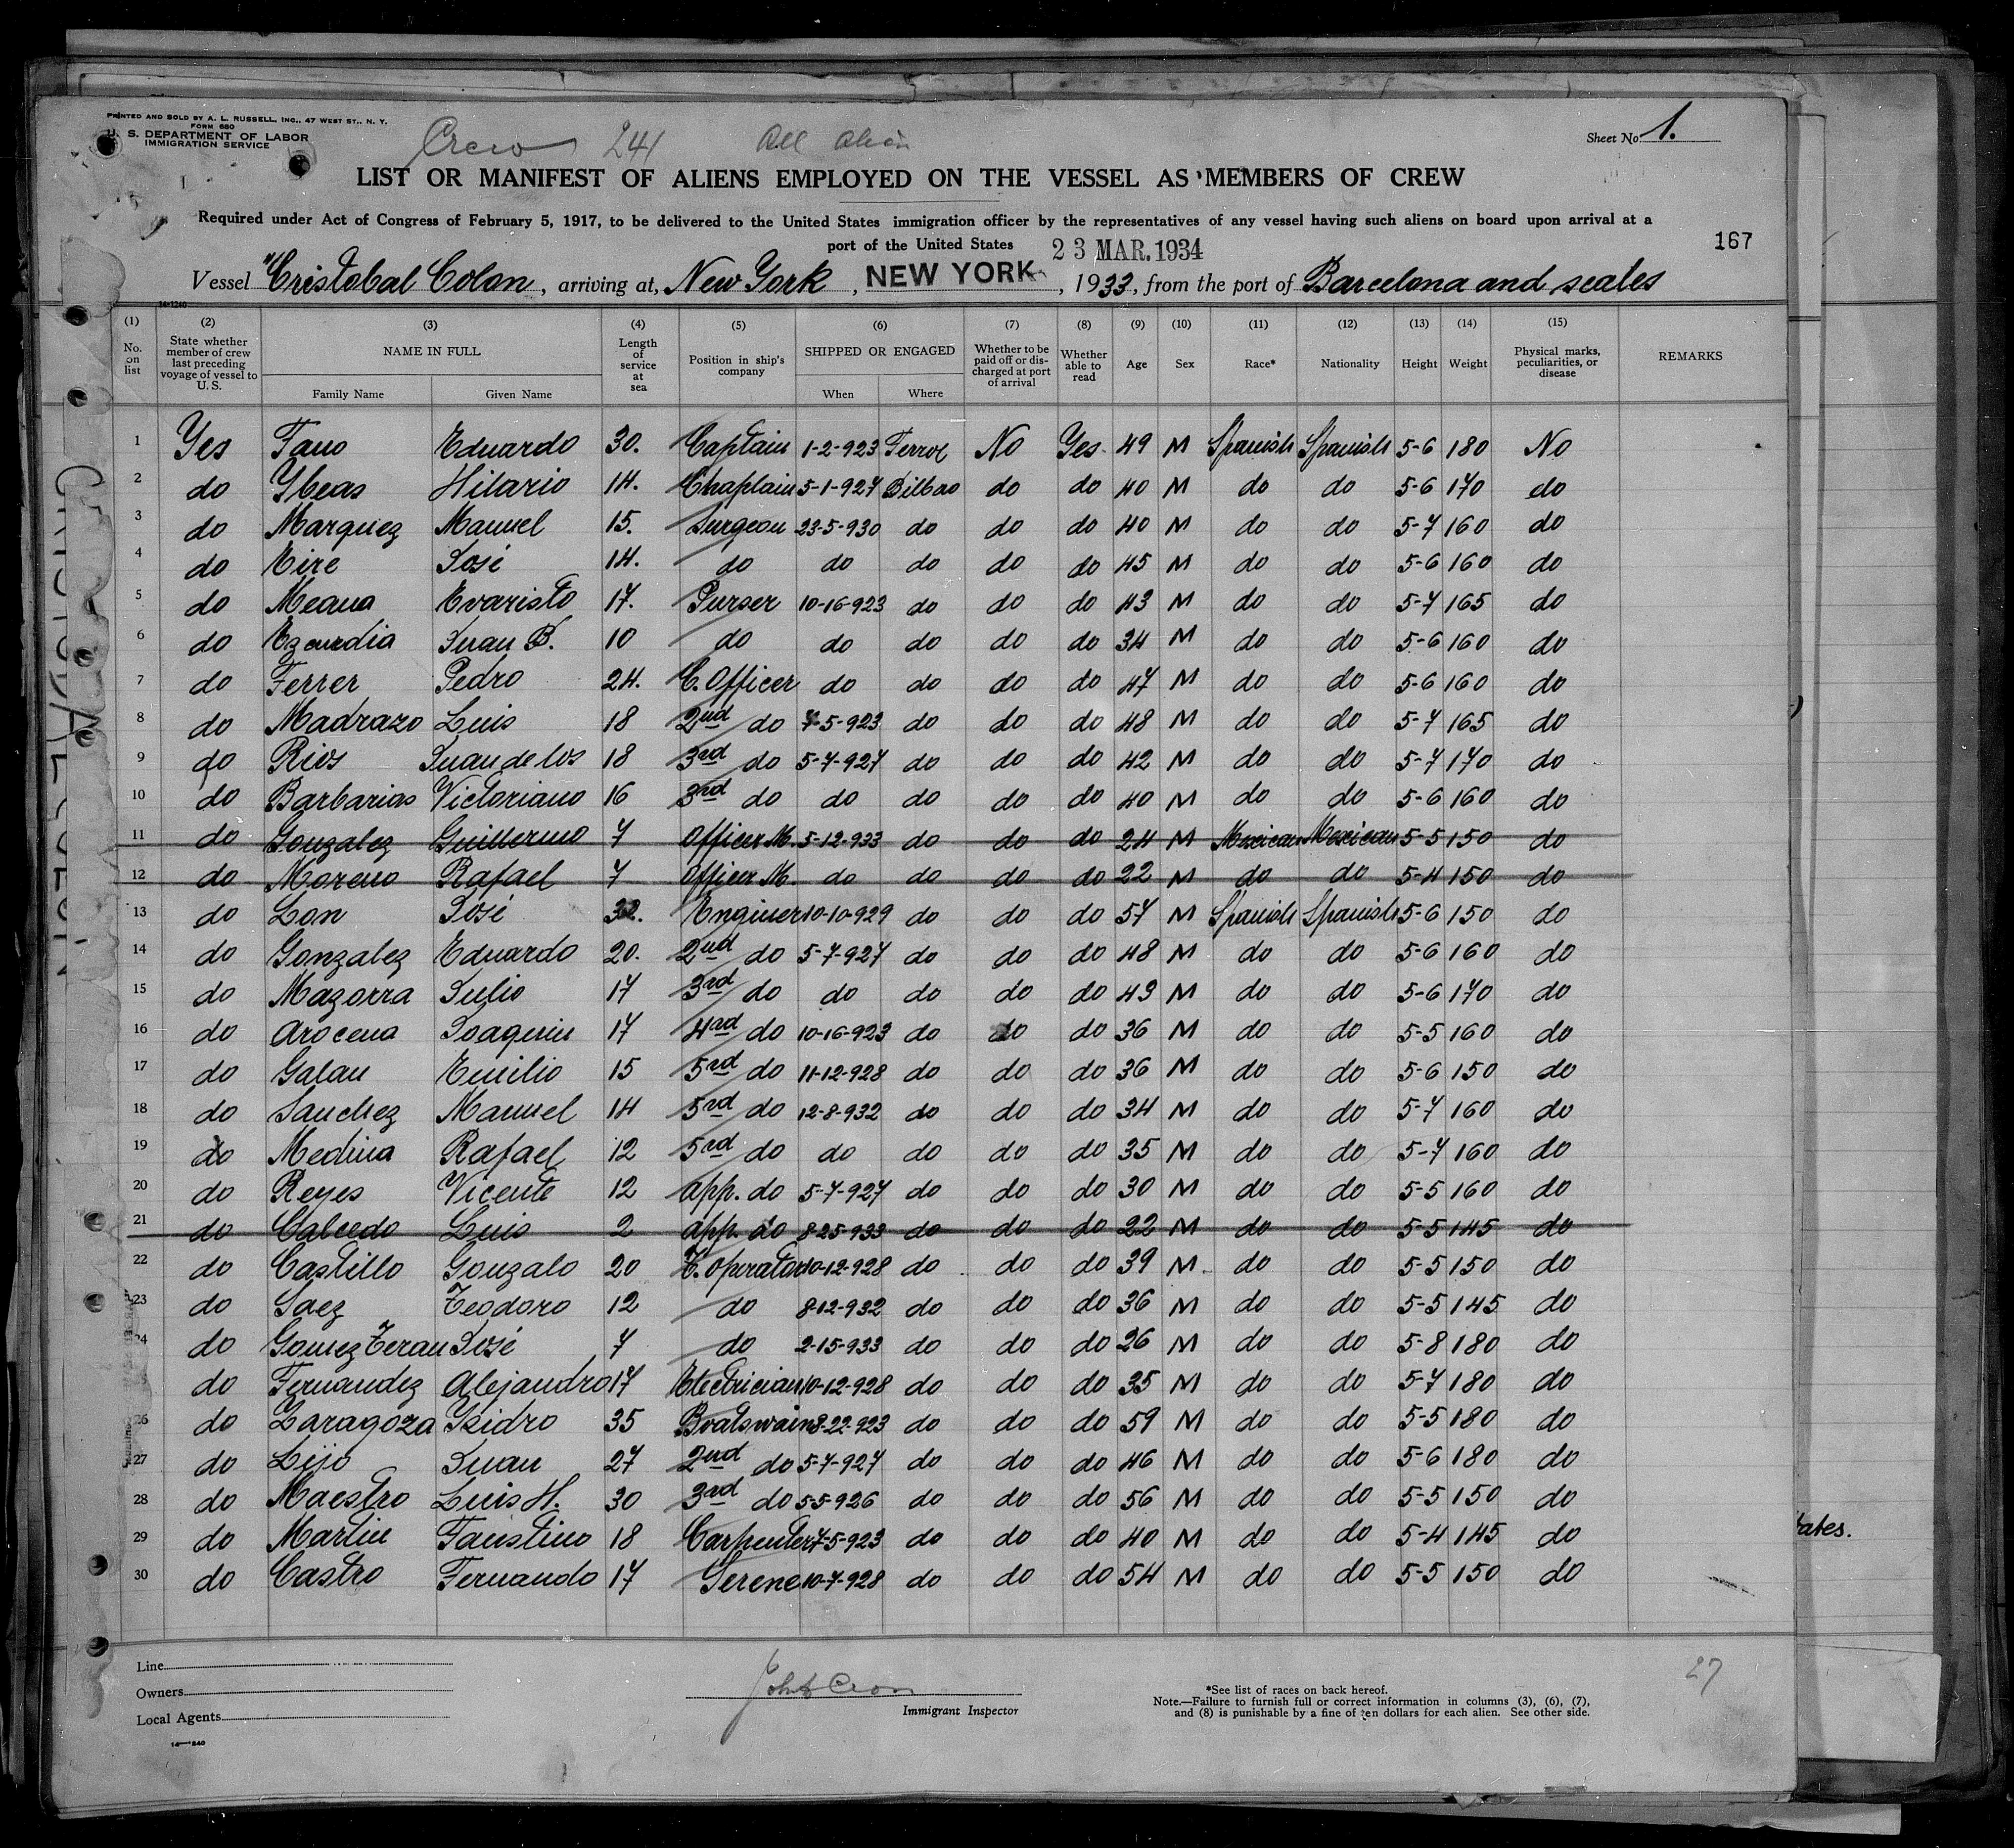 PRINTED AND SOLD BY A. L. RUSSELL, INC., 47 WEST ST., N. Y.
FORM 680
U. S. DEPARTMENT OF LABOR
IMMIGRATION SERVICE
Crew 241 All Alien
Sheet No. 1.
LIST OR MANIFEST OF ALIENS EMPLOYED ON THE VESSEL AS MEMBERS OF CREW
Required under Act of Congress of February 5, 1917, to be delivered to the United States immigration officer by the representatives of any vessel having such aliens on board upon arrival at a
port of the United States 23 MAR. 1934 167
Vessel "Cristobal Colon, arriving at, New York, NEW YORK, 1933, from the port of Barcelona and scales
14-1240
(1) (2) (3) (4) (5) (6) (7) (8) (9) (10) (11) (12) (13) (14) (15)
No. on list State whether member of crew last preceding voyage of vessel to U. S. NAME IN FULL Length of service at sea Position in ship's company SHIPPED OR ENGAGED Whether to be paid off or discharged at port of arrival Whether able to read Age Sex Race* Nationality Height Weight Physical marks, peculiarities, or disease REMARKS
Family Name Given Name When Where
1 Yes Fano Eduardo 30. Captain 1-2-923 Ferrol No Yes 49 M Spanish Spanish 5-6 180 No
2 do Ybeas Hilario 14. Chaplain 5-1-927 Bilbao do do 40 M do do 5-6 170 do
3 do Marquez Manuel 15. Surgeon 23-5-930 do do do 40 M do do 5-7 160 do
4 do Eire José 14. do do do do do 45 M do do 5-6 160 do
5 do Meana Evaristo 17. Purser 10-16-923 do do do 43 M do do 5-7 165 do
6 do Ezcurdia Juan B. 10 do do do do do 34 M do do 5-6 160 do
7 do Ferrer Pedro 24. C. Officer do do do do 47 M do do 5-6 160 do
8 do Madrazo Luis 18 2nd do 7-5-923 do do do 48 M do do 5-7 165 do
9 do Rios Juan de los 18 3rd do 5-7-927 do do do 42 M do do 5-7 170 do
10 do Barbarias Victoriano 16 3rd do do do do do 40 M do do 5-6 160 do
11 do Gonzalez Guillermo 7 Officer M. 5-12-933 do do do 24 M Mexican Mexican 5-5 150 do
12 do Moreno Rafael 7 Officer M. do do do do 22 M do do 5-4 150 do
13 do Lon José 32. Enginer 10-10-929 do do do 57 M Spanish Spanish 5-6 150 do
14 do Gonzalez Eduardo 20. 2nd do 5-7-927 do do do 48 M do do 5-6 160 do
15 do Mazorra Julio 17 3rd do do do do do 43 M do do 5-6 170 do
16 do Arocena Joaquin 17 4rd do 10-16-923 do do do 36 M do do 5-5 160 do
17 do Galan Emilio 15 5rd do 11-12-928 do do do 36 M do do 5-6 150 do
18 do Sanchez Manuel 14 5rd do 12-8-932 do do do 34 M do do 5-7 160 do
19 do Medina Rafael 12 5rd do do do do do 35 M do do 5-7 160 do
20 do Reyes Vicente 12 app. do 5-7-927 do do do 30 M do do 5-5 160 do
21 do Calcedo Luis 2 app. do 8-25-933 do do do 22 M do do 5-5 145 do
22 do Castillo Gonzalo 20 T. Operator 10-12-928 do do do 39 M do do 5-5 150 do
23 do Saez Teodoro 12 do 8-12-932 do do do 36 M do do 5-5 145 do
24 do Gomez Teran José 7 do 2-15-933 do do do 26 M do do 5-8 180 do
do Fernandez Alejandro 17 Electrician 10-12-928 do do do 35 M do do 5-7 180 do
26 do Zaragoza Isidro 35 Boatswain 8-22-923 do do do 59 M do do 5-5 180 do
27 do Lijo Juan 27 2nd do 5-7-927 do do do 46 M do do 5-6 180 do
28 do Maestro Luis H. 30 3rd do 5-5-926 do do do 56 M do do 5-5 150 do
29 do Martin Faustino 18 Carpenter 7-5-923 do do do 40 M do do 5-4 145 do
30 do Castro Fernando 17 Serene 10-7-928 do do do 54 M do do 5-5 150 do
tates.
27
Line
Owners
Local Agents
14-1240
Immigrant Inspector
*See list of races on back hereof.
Note.—Failure to furnish full or correct information in columns (3), (6), (7),
and (8) is punishable by a fine of ten dollars for each alien. See other side.